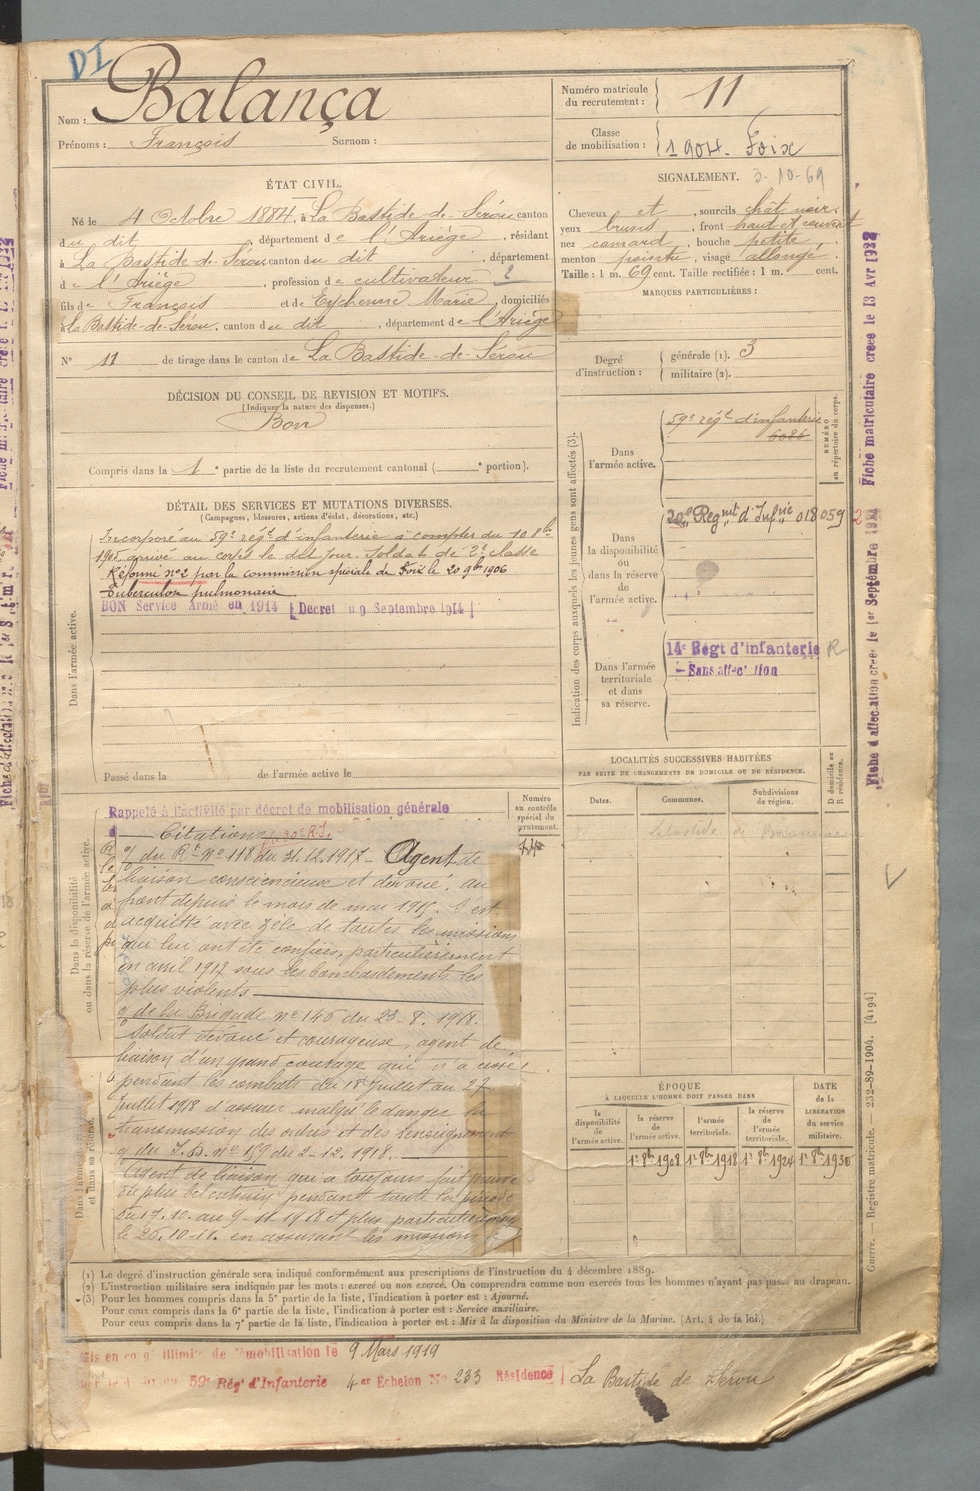 DI
Nom : Balança
Prénoms : François Surnom :
Numéro matricule
du recrutement : 11
Classe
de mobilisation : 1904. Foix
ÉTAT CIVIL.
Né le 4 Octobre 1884, à La Bastide-de-Sérou canton
du dit, département de l'Ariège, résidant
à La Bastide-de-Sérou canton du dit, département
de l'Ariège, profession de cultivateur 2
fils de François et de Eychenne Marie, domiciliés
à La Bastide-de-Sérou, canton du dit, département de l'Ariège
N° 11 de tirage dans le canton de La Bastide-de-Sérou
SIGNALEMENT. 3-10-69
Cheveux et, sourcils chât noir.
yeux bruns, front haut et couvert
nez camard, bouche petite,
menton pointu, visage allongé.
Taille : 1 m. 69 cent. Taille rectifiée : 1 m. cent.
MARQUES PARTICULIÈRES :
Degré
d'instruction :
générale (1). 3
militaire (2).
DÉCISION DU CONSEIL DE REVISION ET MOTIFS.
(Indiquer la nature des dispenses.)
Bon
Compris dans la 1e partie de la liste du recrutement cantonal ( e portion).
DÉTAIL DES SERVICES ET MUTATIONS DIVERSES.
(Campagnes, blessures, actions d'éclat, décorations, etc.)
Dans l'armée active.
Incorporé au 59e régt d'infanterie à compter du 10 8bre
1905, arrivé au corps le dit jour. Soldat de 2e classe
Réformé n°2 par la commission spéciale de Foix le 20 9b 1906
Tuberculose pulmonaire
BON Service Armé en 1914 [Decret du 9 Septembre 1914]
Passé dans la de l'armée active le
Indication des corps auxquels les jeunes gens sont affectés (3).
NUMÉRO
au répertoire du corps.
Dans
l'armée active.
59e régt d'infanterie
6086
Dans
la disponibilité
ou
dans la réserve
de
l'armée active.
20e Regmt d'Infrie 018059 2
Dans l'armée
territoriale
et dans
sa réserve.
14e Régt d'infanterie R
Sans affectation
Dans la disponibilité
ou dans la réserve de l'armée active.
Numéro
au contrôle
spécial du
recrutement.
Rappelé à l'activité par décret de mobilisation générale
Citations 20e R.I.
O/ du Rt N° 118 du 31.12.1917 - Agent de
liaison consciencieux et dévoué, au
front depuis le mois de mai 1915. S'est
acquitté avec zèle de toutes les missions
qui lui ont été confiées, particulièrement
en avril 1917 sous les bombardements les
plus violents
O/ de la Brigade N° 146 du 23-8.1918.
Soldat dévoué et courageux, agent de
liaison d'un grand courage qui n'a cessé
pendant les combats du 18 Juillet au 27
Juillet 1918 d'assurer malgré le danger la
transmission des ordres et des renseignements
O/ du I.D. N° 159 du 2-12.1918.
Agent de liaison qui a toujours fait preuve
pendant toute la période
du 17.10. au 9-11-1918 et plus particulièrement
le 26.10-18. en assurant les missions
LOCALITÉS SUCCESSIVES HABITÉES
PAR SUITE DE CHANGEMENTS DE DOMICILE OU DE RÉSIDENCE.
Dates. Communes. Subdivisions
de région. D domicile ou
R résidence.
Labastide de
ÉPOQUE
À LAQUELLE L'HOMME DOIT PASSER DANS
DATE
de la
LIBÉRATION
du service
militaire.
la
disponibilité
de
l'armée active.
la réserve
de
l'armée active.
l'armée
territoriale.
la réserve
de
l'armée
territoriale.
1er 8bre 1908 1er 8bre 1918 1er 8bre 1924 1er 8bre 1930
(1) Le degré d'instruction générale sera indiqué conformément aux prescriptions de l'instruction du 4 décembre 1889.
(2) L'instruction militaire sera indiquée par les mots : exercé ou non exercé. On comprendra comme non exercés tous les hommes n'ayant pas passé au drapeau.
(3) Pour les hommes compris dans la 5e partie de la liste, l'indication à porter est : Ajourné.
Pour ceux compris dans la 6e partie de la liste, l'indication à porter est : Service auxiliaire.
Pour ceux compris dans la 7e partie de la liste, l'indication à porter est : Mis à la disposition du Ministre de la Marine. (Art. 4 de la loi.)
Mis en congé illimité de démobilisation le 9 Mars 1919
59e Régt d'Infanterie 4er Echelon N° 233 Résidence La Bastide de Sérou
Fiche matriculaire créée le 13 Avr 1922
Fiche d'affectation créée le 1er Septembre
Guerre. — Registre matricule. — 232-89-1904. [4194]